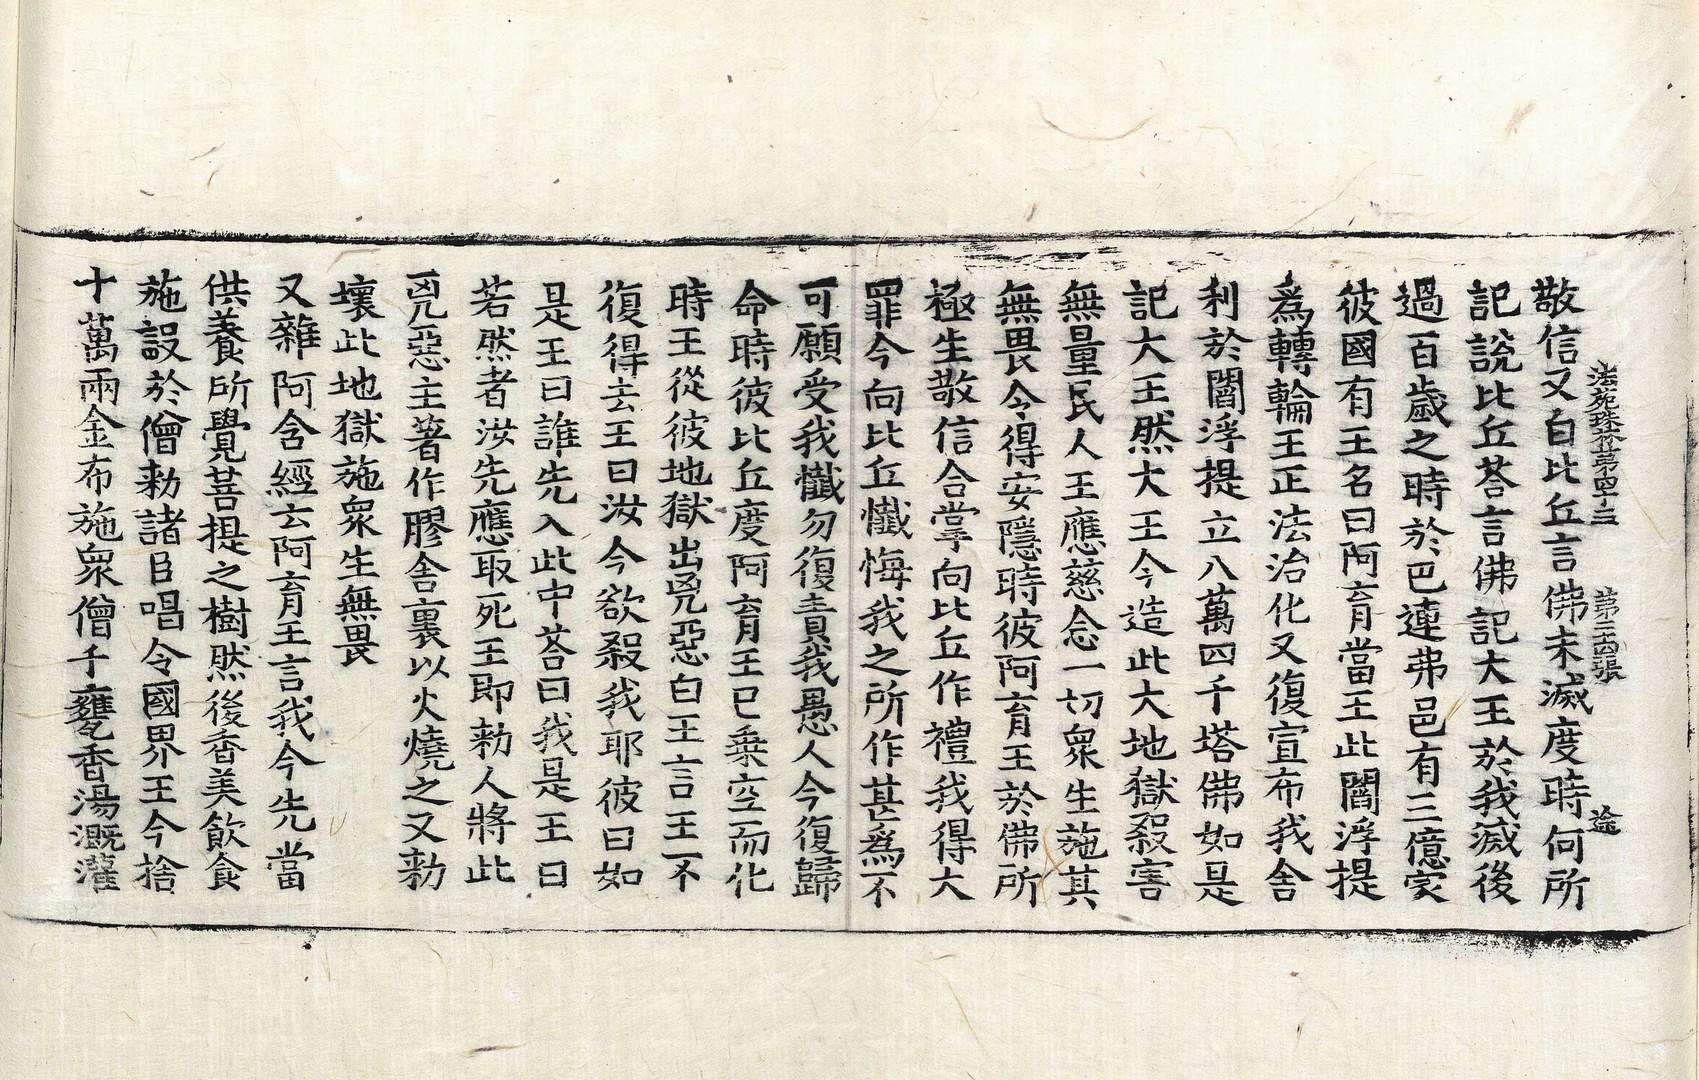 法苑珠林第四十三 第二十四張 途
敬信又白比丘言佛未滅度時何所
記說比丘荅言佛記大王於我滅後
過百歲之時於巴連弗邑有三億家
彼國有王名曰阿育當王此閻浮提
爲轉輪王正法治化又復宣布我舍
利於閻浮提立八萬四千塔佛如是
記大王然大王今造此大地獄殺害
無量民人王應慈念一切衆生施其
無畏令得安隱時彼阿育王於佛所
極生敬信合掌向比丘作禮我得大
罪今向比丘懺悔我之所作甚爲不
可願受我懺勿復責我愚人今復歸
命時彼比丘度阿育王已乗空而化
時王從彼地獄出兇惡白王言王不
復得去王曰汝今欲殺我耶彼曰如
是王曰誰先入此中荅曰我是王曰
若然者汝先應取死王即勑人將此
兇惡主著作膠舍裏以火燒之又勑
壞此地獄施衆生無畏
又雜阿含經云阿育王言我今先當
供養所覺菩提之樹然後香美飮食
施設於僧勑諸臣唱令國界王今捨
十萬兩金布施衆僧千甕香湯溉灌